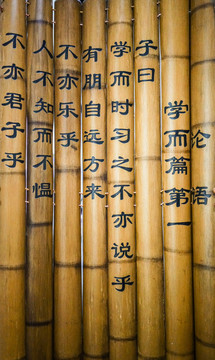 论语
学而篇第一
子曰
学而时习之不亦说乎
有朋自远方来
不亦乐乎
人不知而不愠
不亦君子乎